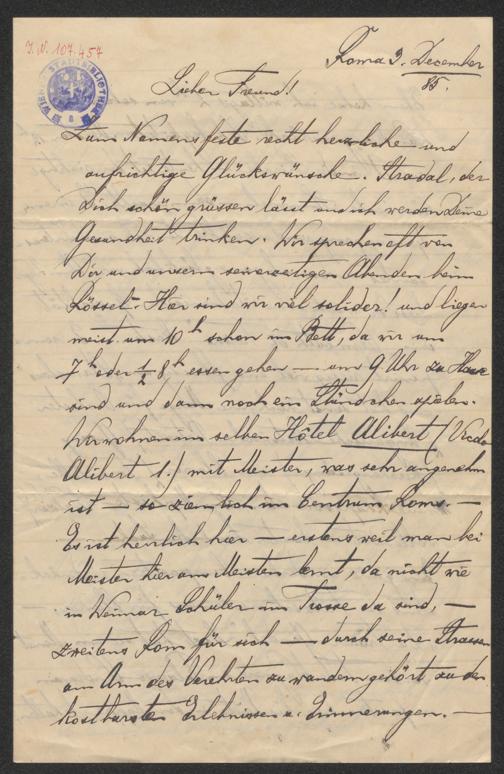 I.N. 107.457
Roma 3. December
85.
WIENER STADTBIBLIOTHEK
Lieber Freund!
Zum Namensfeste recht herzliche und
aufrichtige Glückwünsche. Stradal, der
Dich schön grüssen lässt und ich werden Deine
Gesundheit trinken. Wir sprechen oft von
Dir und unsern seinerzeitigen Abenden beim
Rössel. Hier sind wir viel solider! und liegen
meist um 10h schon im Bett, da wir um
7h oder ½ 8h essen gehen — um 9 Uhr zu Hause
sind und dann noch ein Stündchen spielen.
Wir wohnen im selben Hôtel Alibert (Vicolo
Alibert 1.) mit Meister, was sehr angenehm
ist — so ziemlich im Centrum Roms. —
Es ist herrlich hier — erstens weil man bei
Meister hier am Meisten lernt, da nicht wie
in Weimar Schüler im Trosse da sind, —
zweitens Rom für sich — durch seine Strassen
am Arm des Verehrten zu wandern gehört zu den
kostbarsten Erlebnissen u. Erinnerungen. —